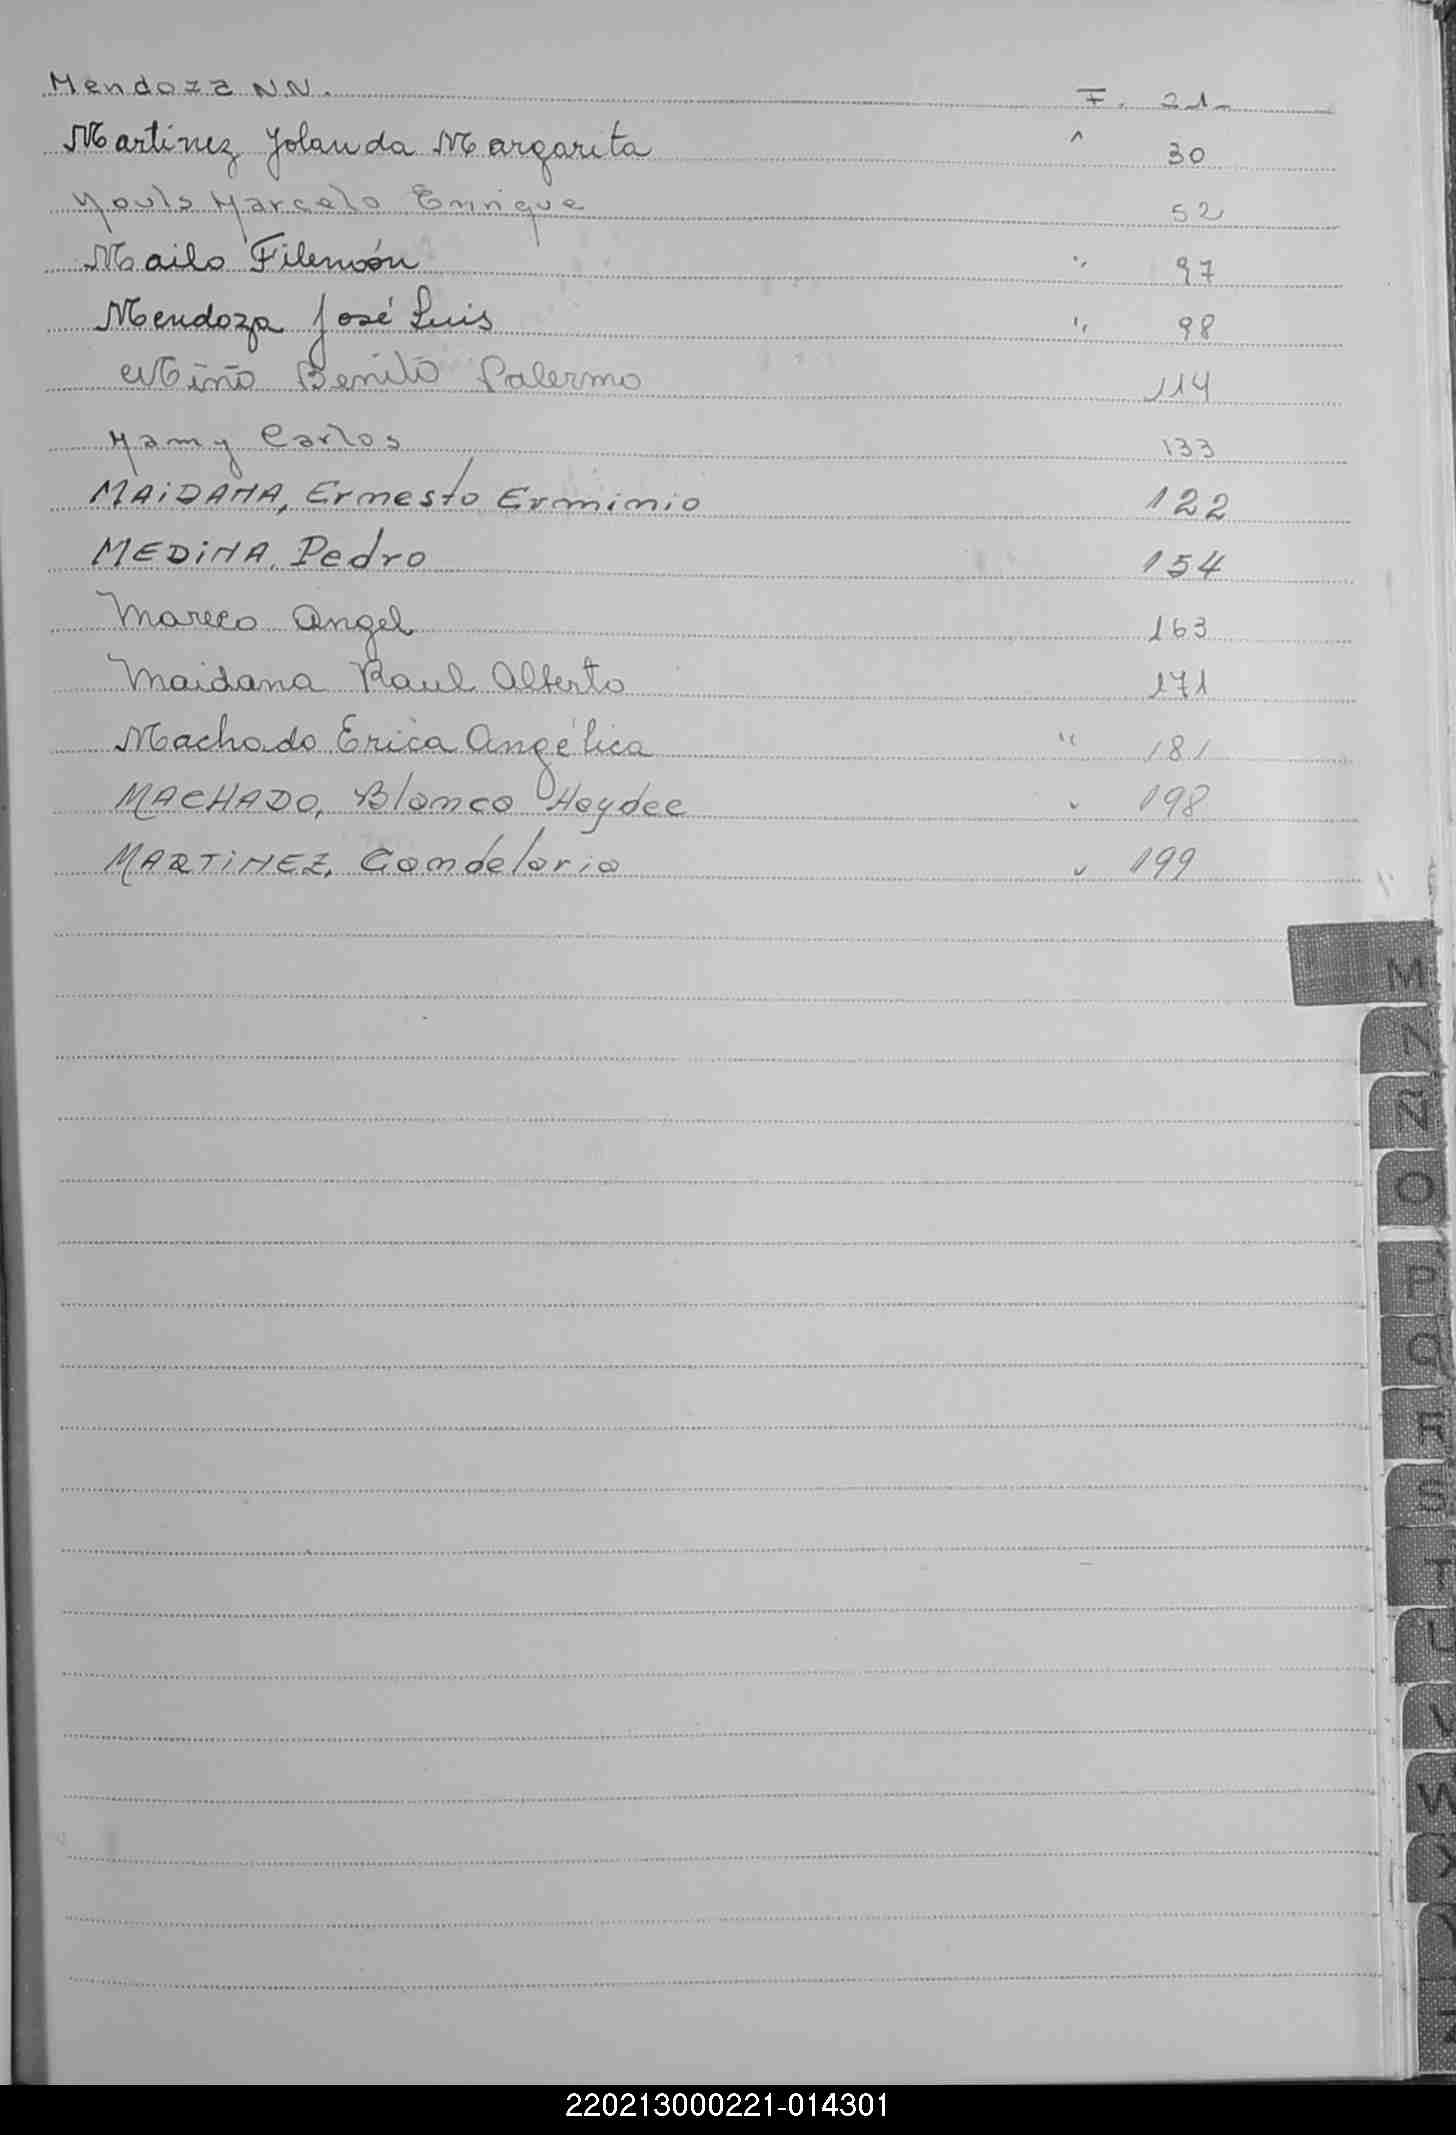 Mendoza NN. F. 21-
Martinez Yolanda Margarita " 30
Marcelo Enrique 52
Mailo Filemón " 97
Mendoza José Luis " 98
Miño Benito Palermo 114
Mamy Carlos 133
MAIDANA, Ernesto Erminio 122
MEDINA, Pedro 154
Mareco Angel 163
Maidana Raul Alberto 171
Machado Erica Angélica " 181
MACHADO, Blanca Haydee " 198
MARTINEZ, Candelaria " 199
M
N
Ñ
O
P
Q
R
S
T
U
V
W
X
Y
Z
220213000221-014301